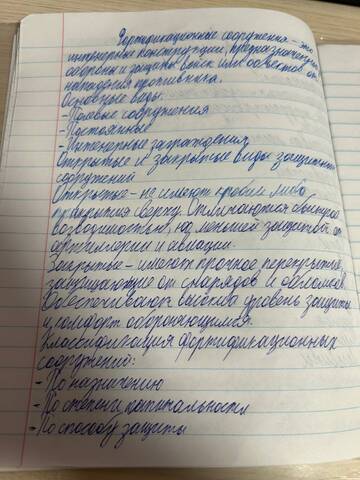 Фортификационные сооружения - это
инженерные конструкции, предназначенные
обороны и защиты войск или объектов от
нападения противника.
Основные виды:
- Полевые сооружения
- Постоянные
- Инженерные заграждения
Открытые и закрытые виды защитных
сооружений
Открытые - не имеют кровли либо
прикрытия сверху. Отличаются
возводимостью, но меньшей защитой от
артиллерии и авиации.
Закрытые - имеют прочное перекрытие,
защищающие от снарядов и обломков.
Обеспечивают высокий уровень защиты
и комфорт обороняющимся.
Классификация фортификационных
сооружений:
- По назначению
- По степени капитальности
- По способу защиты